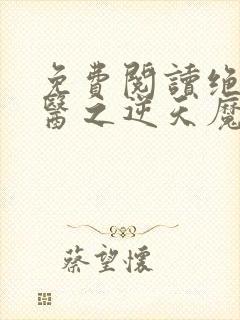 免費閱讀绝
醫之逆天魔
蔡望懷